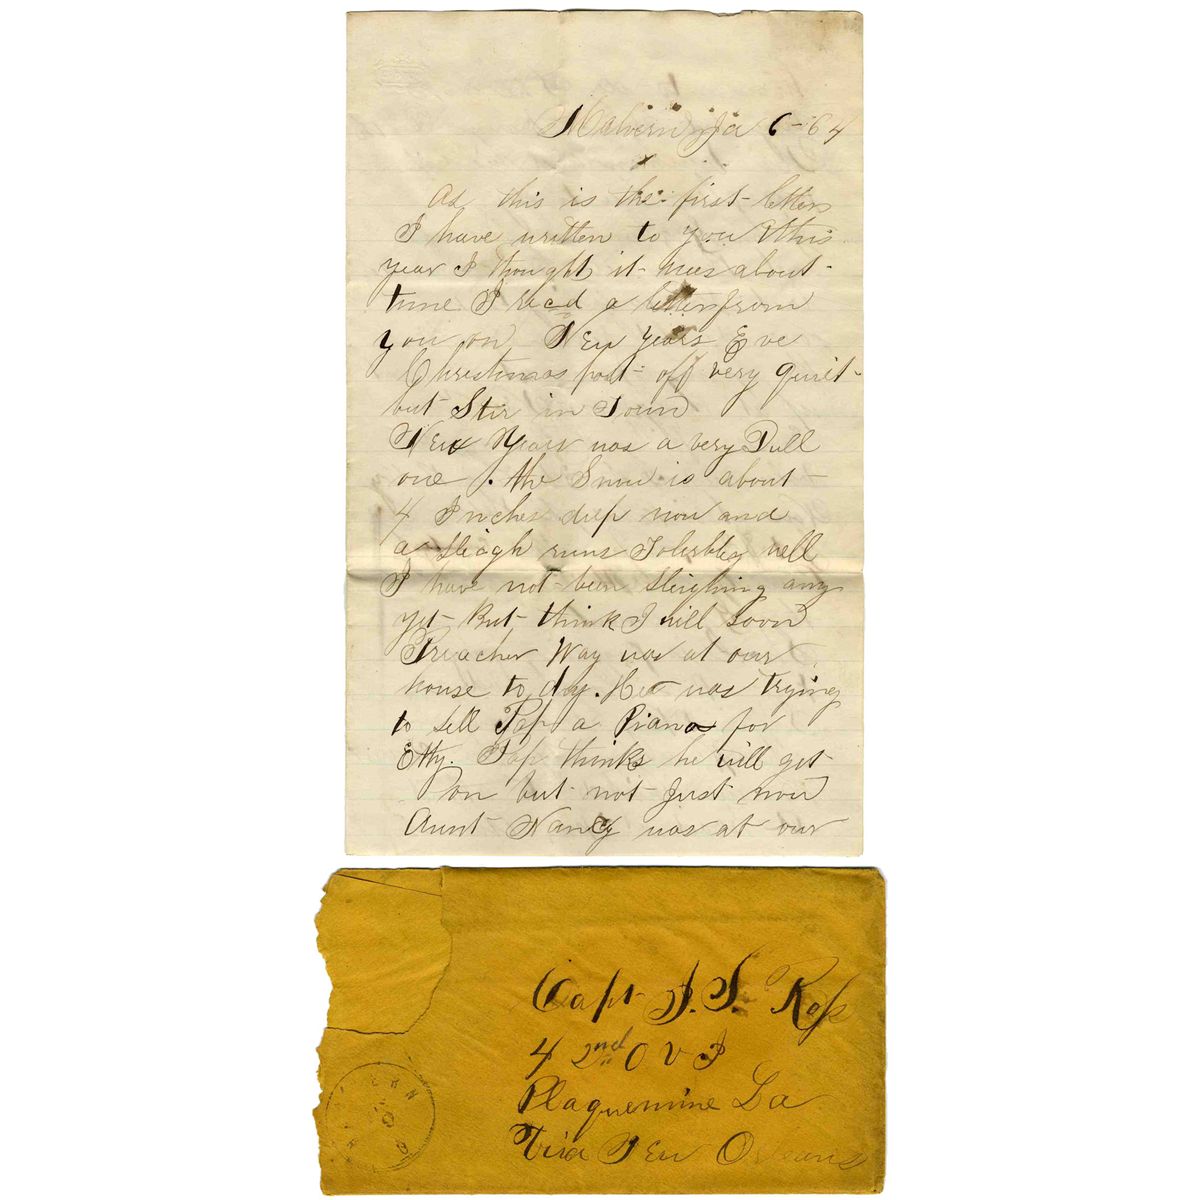 Malvern Ja 6-64
As this is the first letter
I have written to you this
year I thought it was about
time I recd a letter from
you on New Years Eve
Christmas past off very quiet
but Stir in Town
New Years was a very Dull
one. the Snow is about
4 Inches deep now and
a sleigh runs Tolerbley well
I have not been sleighing any
yet But think I will soon
Preacher Way was at our
house to day. He was trying
to sell Pap a Piano for
Etty. Pap thinks he will get
on but not just now
Aunt Nancy was at our
Capt J. S. Ross
42nd O V I
Plaquemine La
Via New Orleans
MALVERN
O